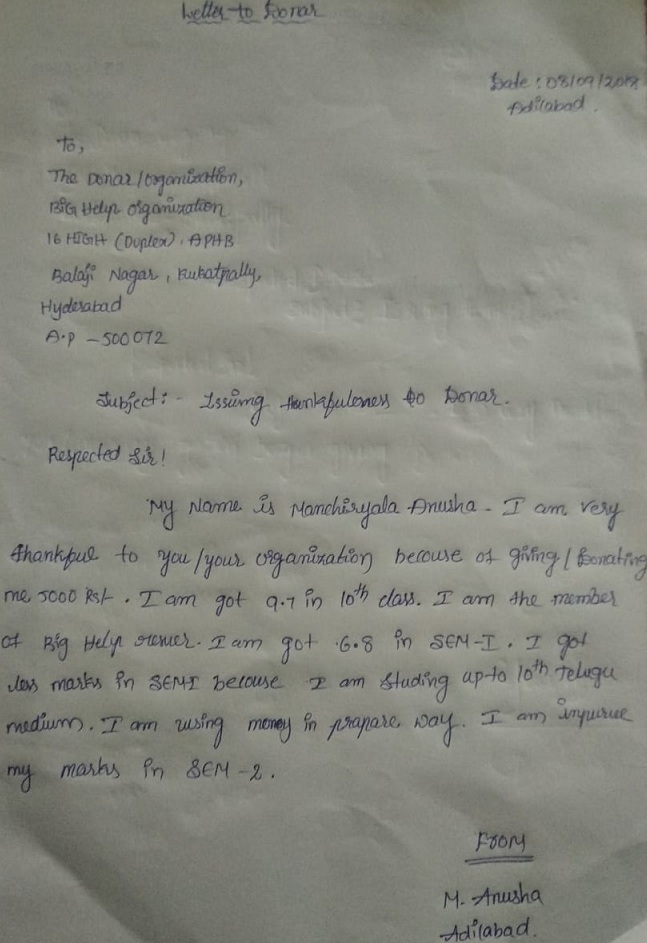 Letter to Donar
Date : 08/09/2018
Adilabad.
To,
The Donar/organization,
BIG Help organization
16 HIGH (Duplex), APHB
Balaji Nagar, Kukatpally,
Hyderabad
A.P - 500072
Subject:- Issuing thankfuleness to Donar.
Respected Sir!
My Name is Manchiryala Anusha. I am very
thankful to you/your organization becouse of giving/donating
me 5000 Rs/-. I am got 9.7 in 10th class. I am the member
of Big Help. I am got 6.8 in SEM-I. I got
less marks in SEM-I becouse I am Studing up-to 10th Telugu
medium. I am using money in prapare way. I am
my marks in SEM-2.
FROM
M. Anusha
Adilabad.